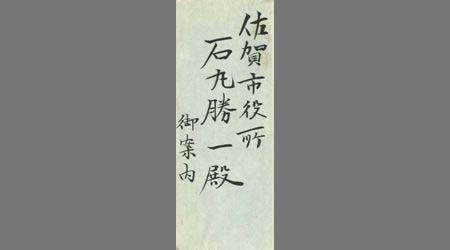 佐賀市役所
石丸勝一殿
御案内